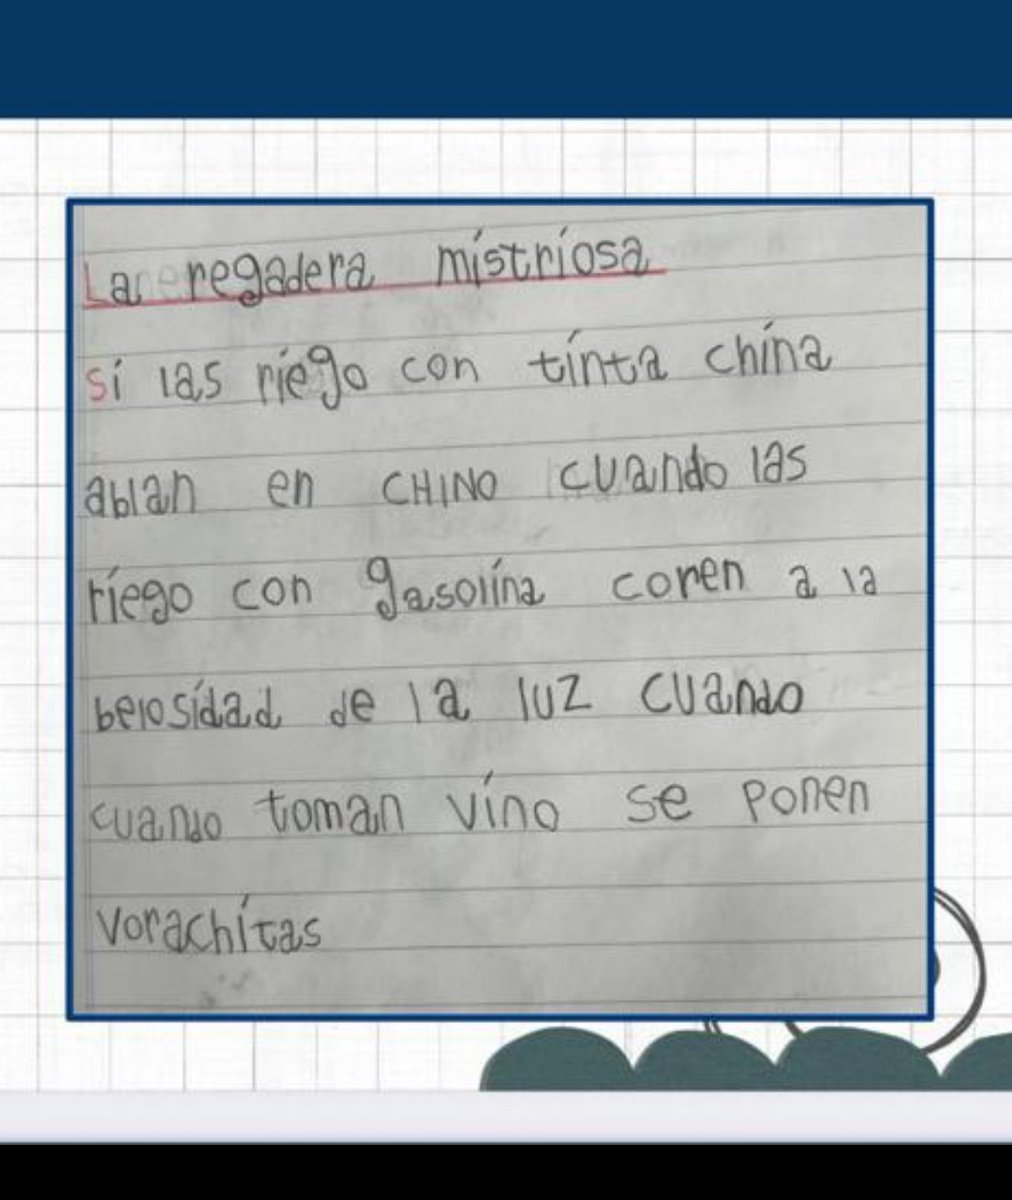 La regadera mistriosa
si las riego con tinta china
ablan en CHINO cuando las
riego con gasolina coren a la
belosidad de la luz cuando
cuando toman vino se ponen
vorachitas